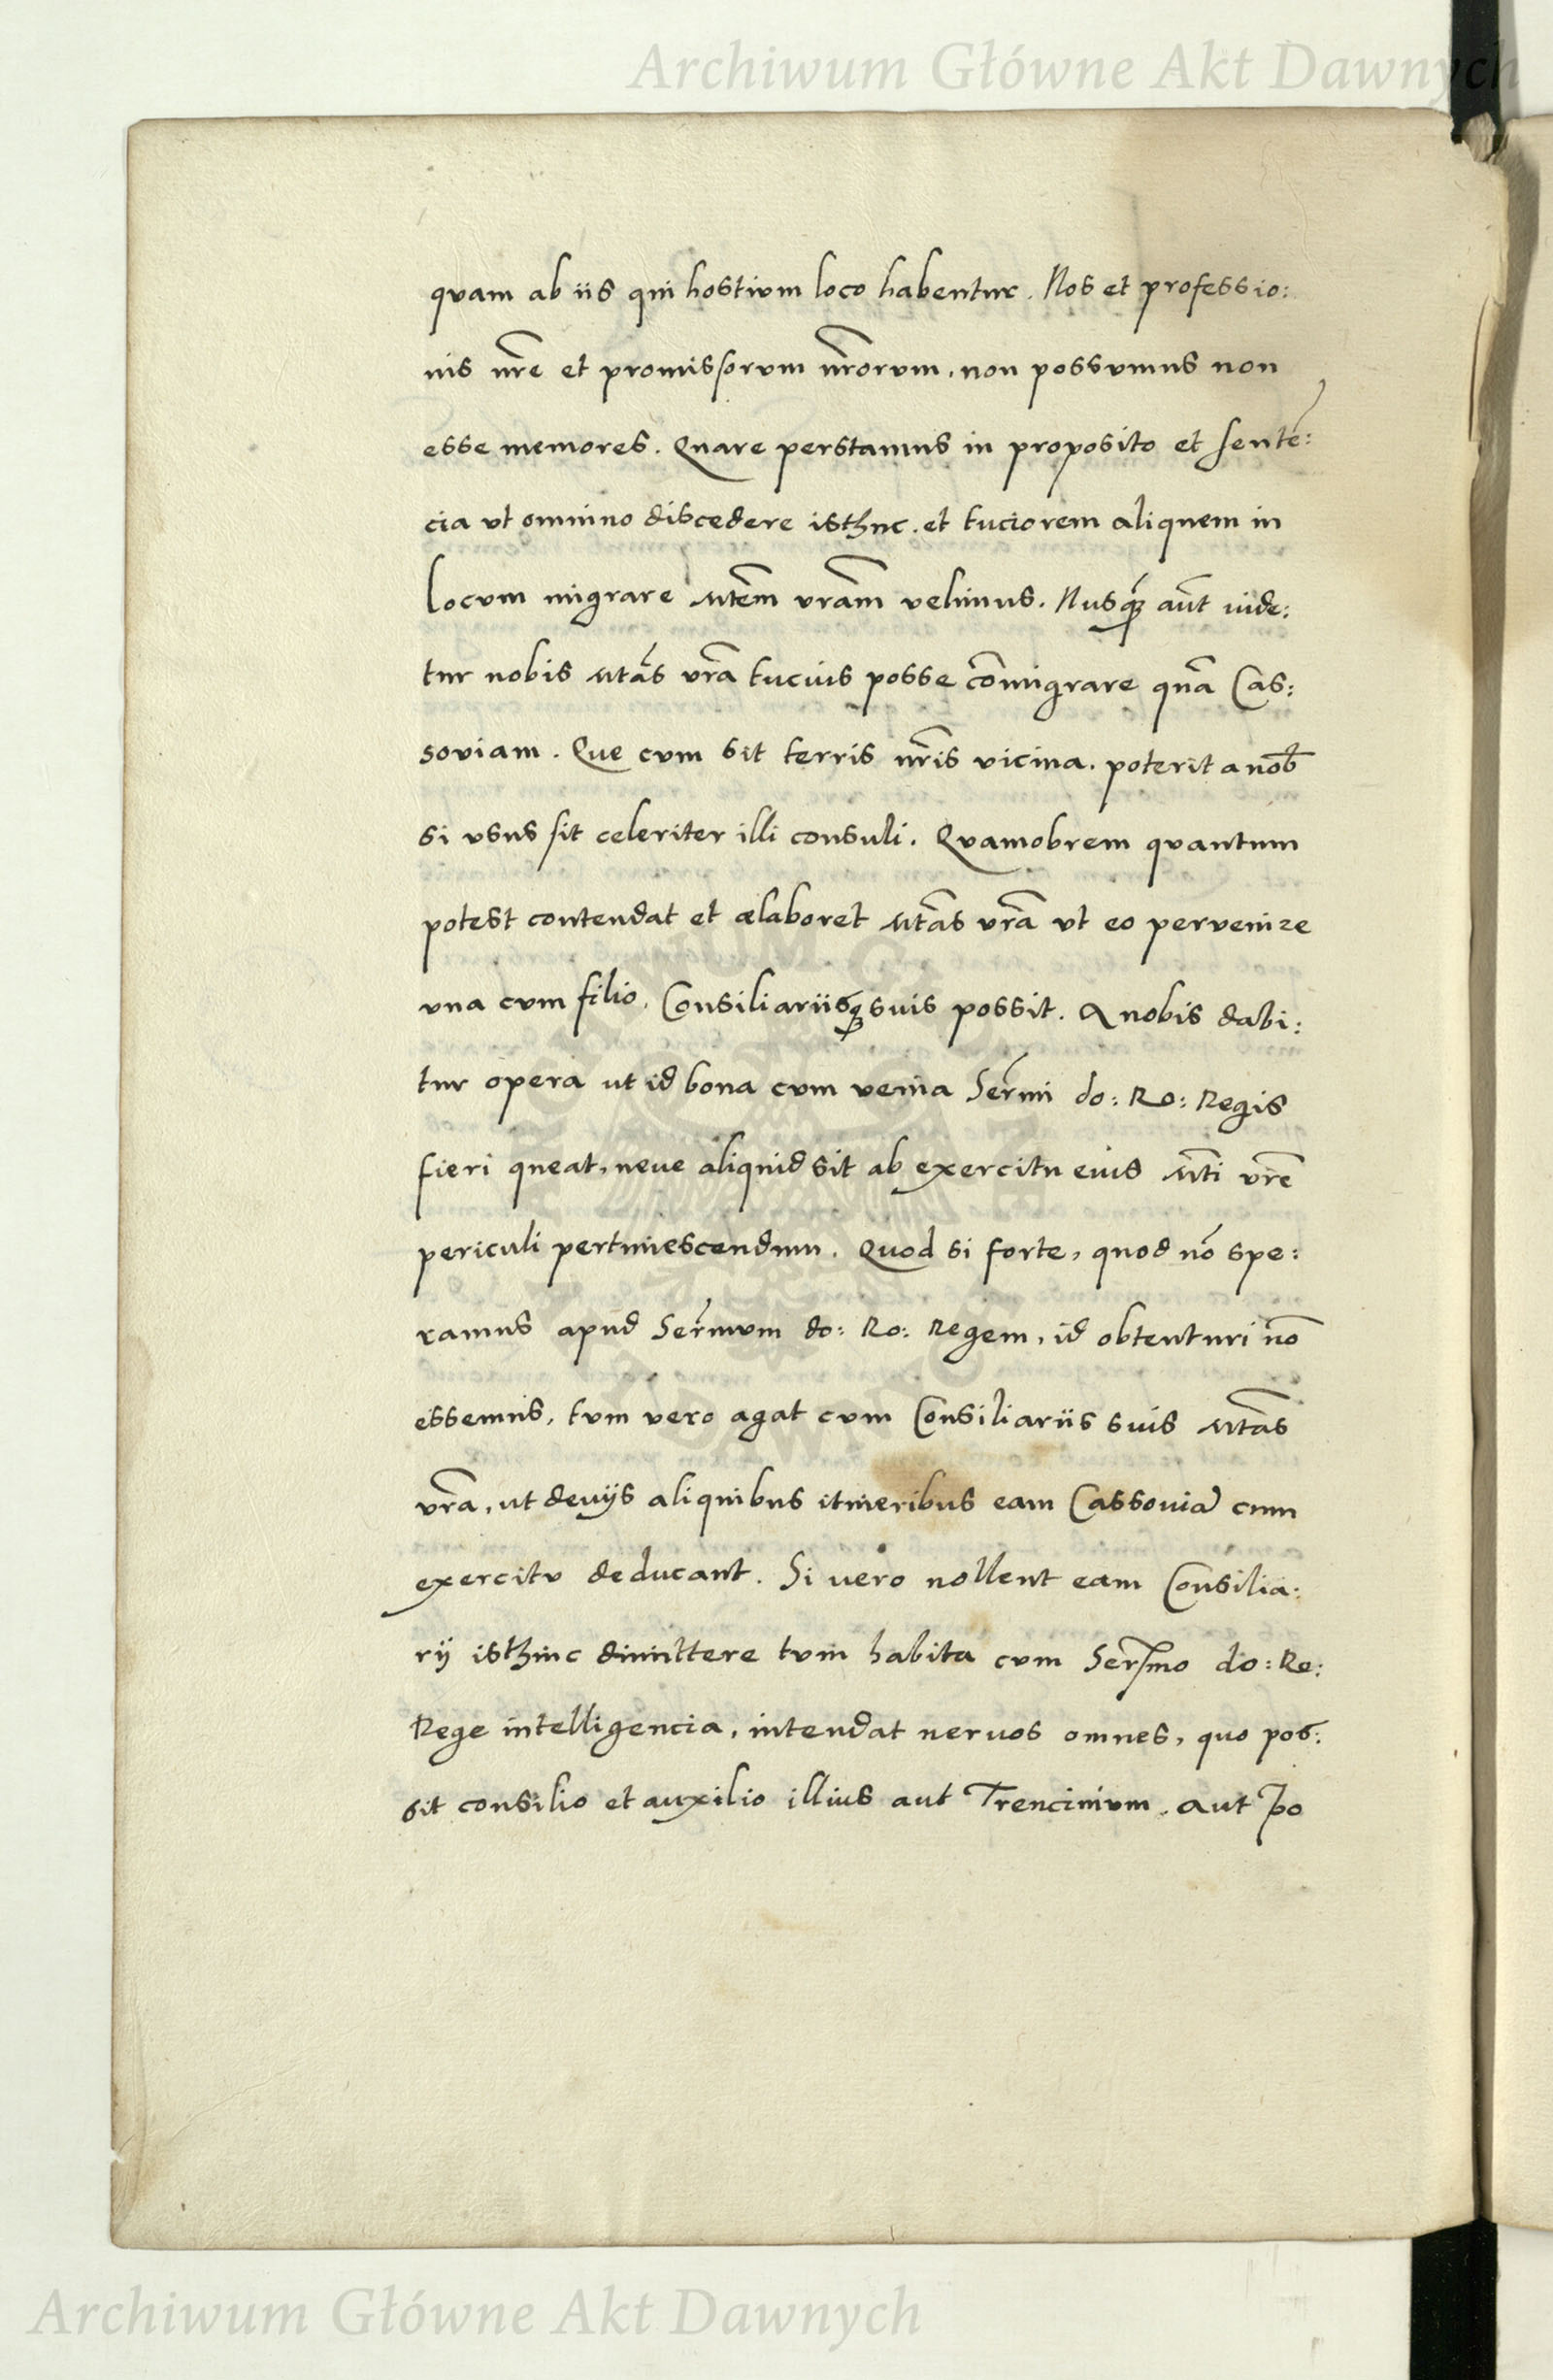 Archiwum Główne Akt Dawnych
quam ab iis qui hostium loco habentur. Nos et professio:
nis nr̃e et promissorum nr̃orum, non possumus non
esse memores. Quare perstamus in proposito et senté:
cia ut omnino discedere isthuc. et tuciorem aliquem in
locum migrare Mtẽm vrãm velimus. Nusq̃ꝫ aũt vide:
tur nobis Mtãs vrã tucius posse cõmigrare quã Cas:
soviam. Que cum sit terris nr̃is vicina. poterit a nob̃
si usus sit celeriter illi consuli. Quamobrem quantum
potest contendat et elaboret Mtãs vrã ut eo pervenire
una cum filio, Consiliariisqꝫ suis possit. A nobis dabi:
tur opera ut id bona cum venia Ser̃mi do: Ro: Regis
fieri queat, neve aliquid sit ab exercitu eius Mt̃i vr̃e
periculi pertimescendum. Quod si forte, quod nõ spe:
ramus apud Ser̃mum do: Ro: Regem, id obtenturi nõ
essemus, tum vero agat cum Consiliariis suis Mtãs
vrã, ut devijs aliquibus itineribus eam Cassoviã cum
exercitu deducant. Si vero nollent eam Consilia:
rij isthinc dimittere tum habita cum Ser̃mo do: Re:
Rege intelligencia, intendat nervos omnes, quo pos:
sit consilio et auxilio illius aut Trencinium, aut Po
Archiwum Główne Akt Dawnych